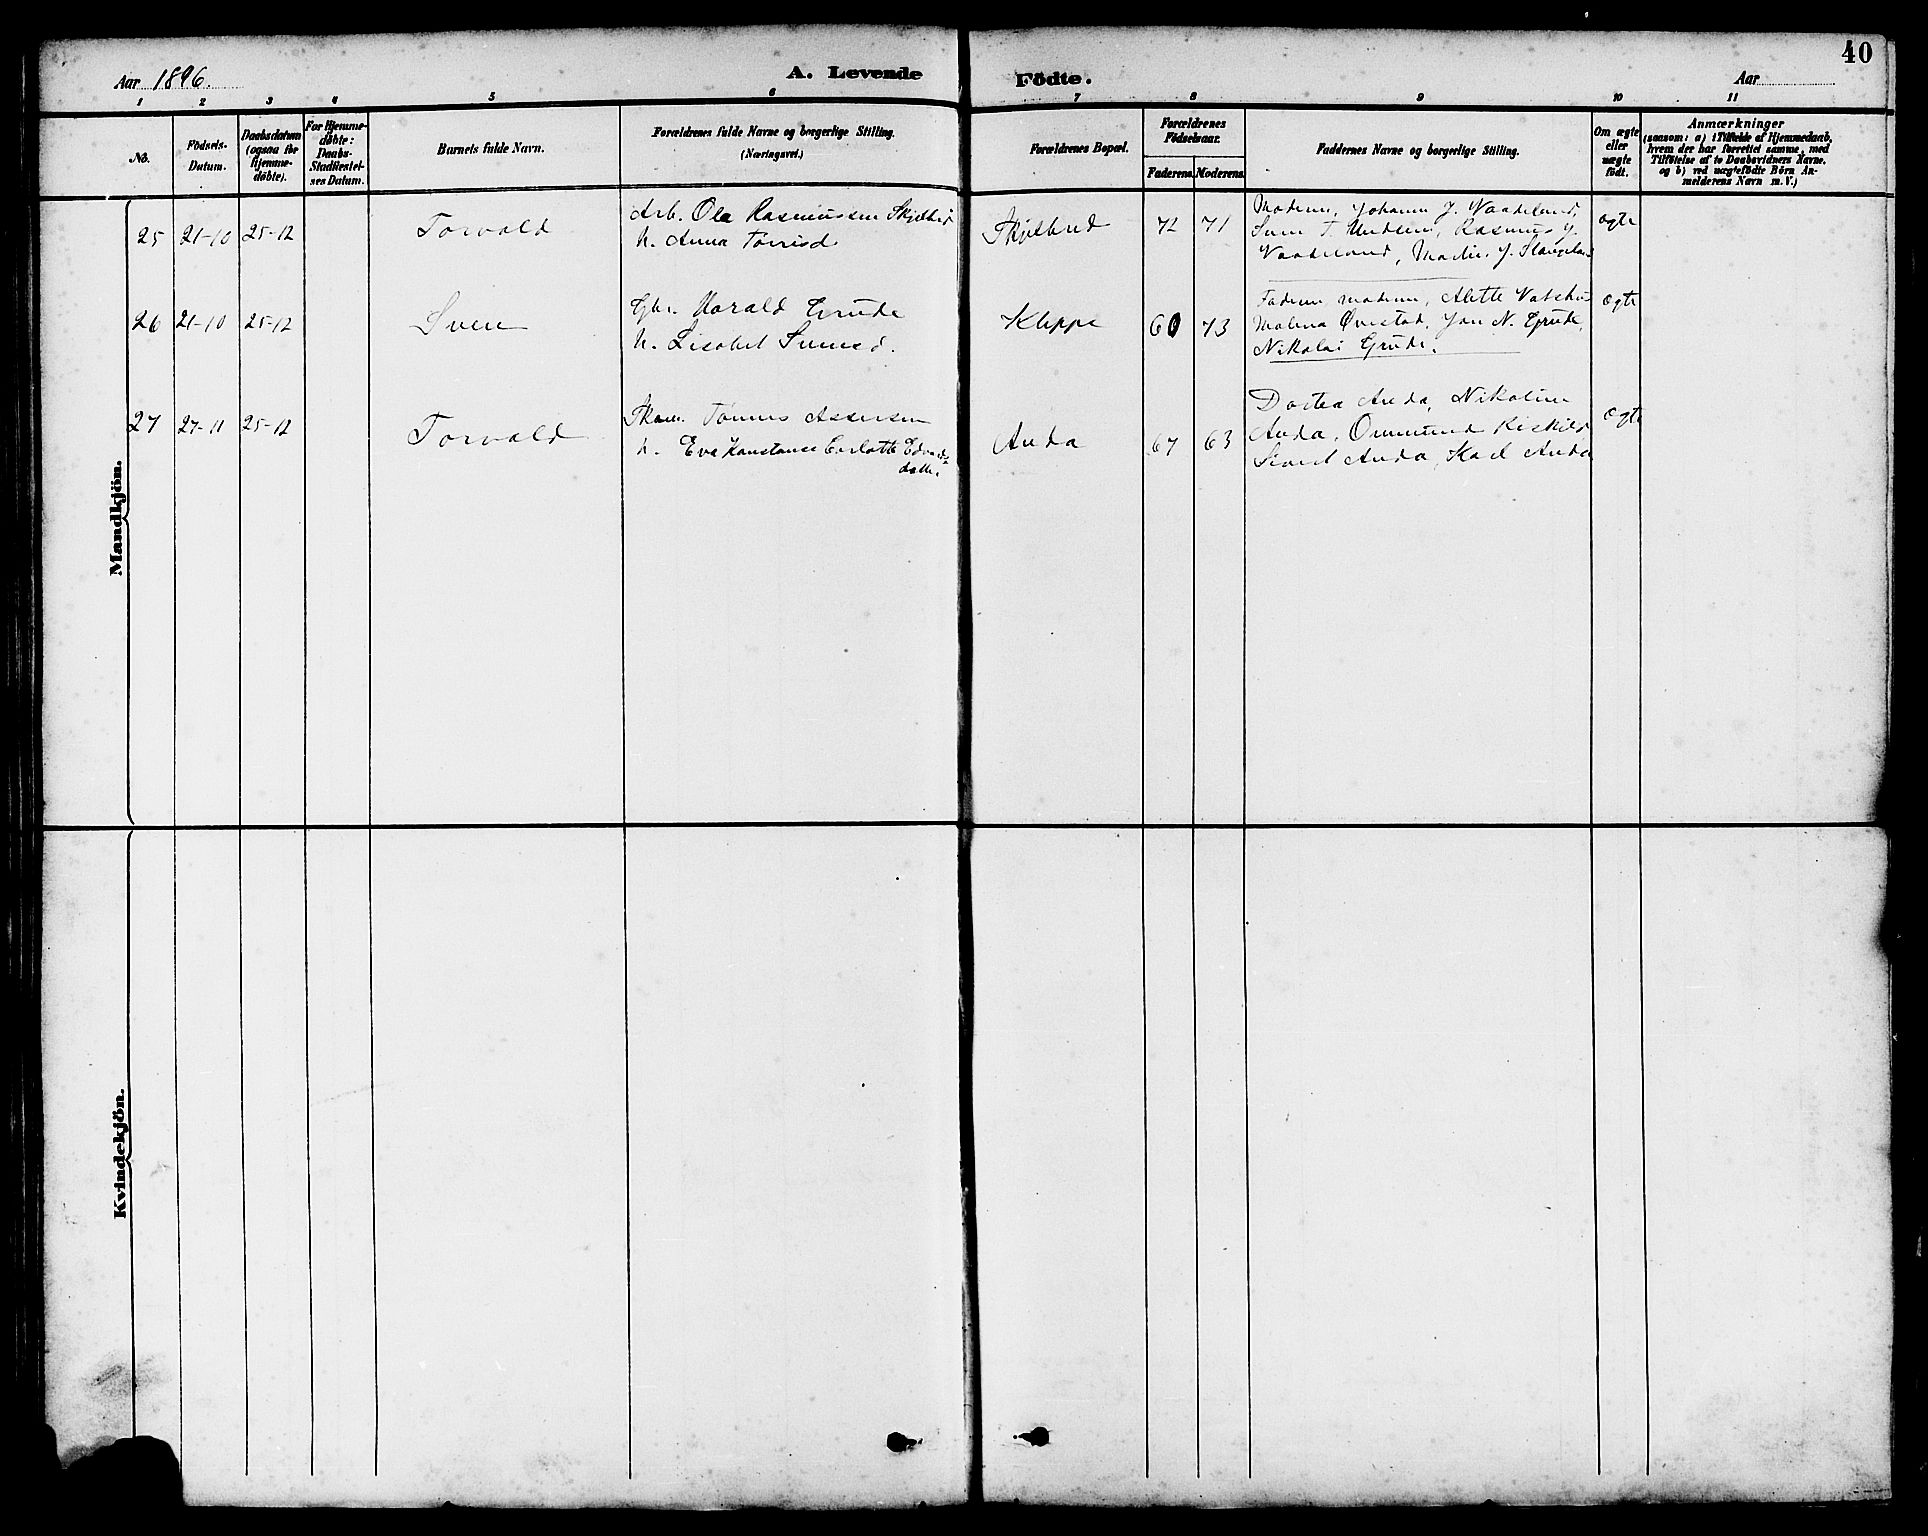 40
Aar 1896.
A. Levende Födte.
Aar
1 2 3 4 5 6 7 8 9 10 11
No.
Födsels-Datum.
Daabsdatum (ogsaa for Hjemme-döbte).
For Hjemme-döbte: Daabs-Stadfæstel-ses Datum.
Barnets fulde Navn.
Forældrenes fulde Navne og borgerlige Stilling.
(Næringsvei.)
Forældrenes Bopæl.
Forældrenes Födselsaar.
Faderens. Moderens.
Faddernes Navne og borgerlige Stilling.
Om ægte eller uægte födt.
Anmærkninger
(saasom: a) i Tilfælde af Hjemmedaab,
hvem der har forrettet samme, med
Tilföielse af to Daabsvidners Navne,
og b) ved uægtefödte Börn An-
melderens Navn m. V.)
Mandkjön.
25 21-10 25-12 Torvald
Arb. Ole Rasmussen
h. Anna
72 71
Moderen, Johanna J. Vaadeland,
Rasmus J.
Vaadeland,
ægte
26 21-10 25-12 Sven
Gbr. Harald Grude
h. Lisabet
Kleppe
60 73
Faderen, moderen, Alette
Malena Øvestad, Jon N. Grude,
Nikolai Grude.
ægte
27 27-11 25-12 Torvald
Tønnes Assersen
h. Eva Konstanse
Anda
67 63
Dortea Anda, Nikoline
Anda, Ommund
Sivert Anda, Karl Anda
ægte
Kvindekjön.